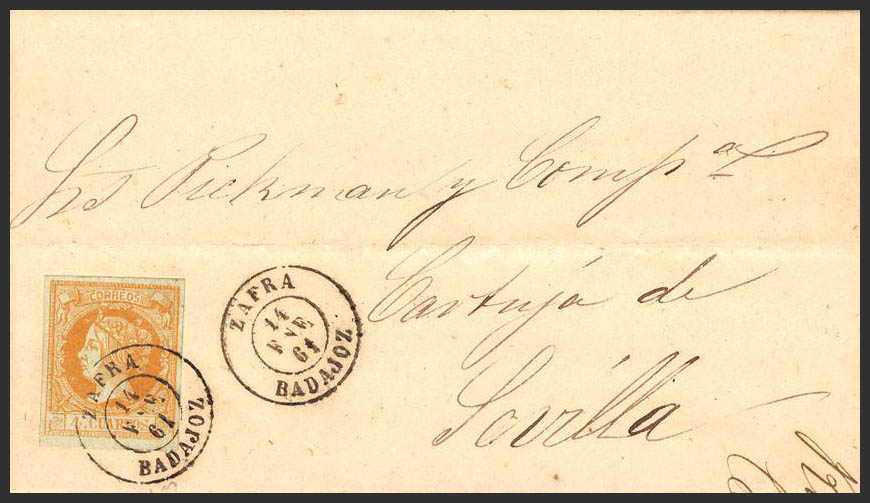 Srs Pickman y Compª
Cartuja de
Sevilla
CORREOS
4 CUARTOS
ZAFRA
14
ENE
61
BADAJOZ
ZAFRA
14
ENE
61
BADAJOZ